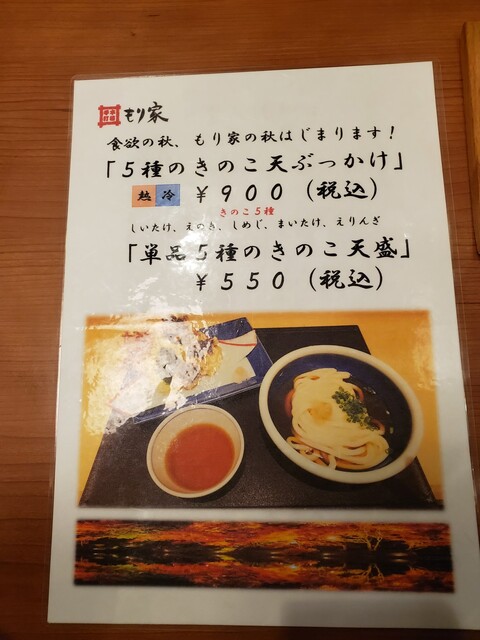 もり家
食欲の秋、もり家の秋はじまります！
「５種のきのこ天ぶっかけ」
熱 冷 ￥９００（税込）
きのこ５種
しいたけ、えのき、しめじ、まいたけ、えりんぎ
「単品５種のきのこ天盛」
￥５５０（税込）